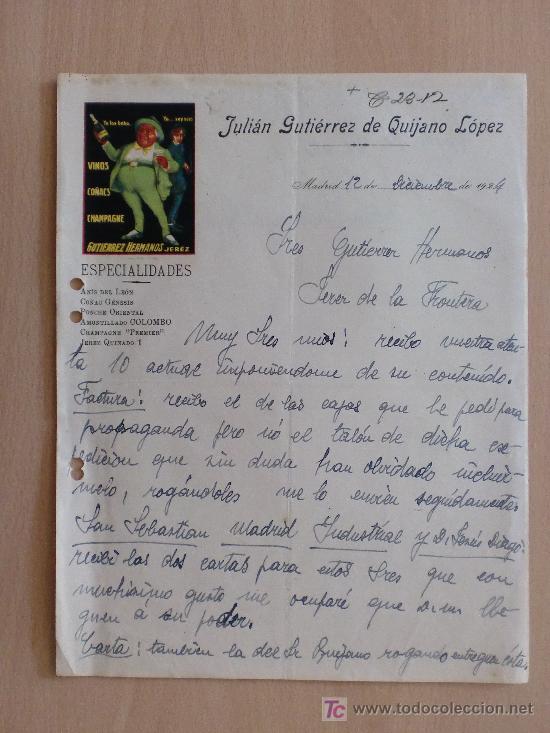 + 23-12
Julián Gutiérrez de Quijano López
Madrid 12 de Diciembre de 1924
Yo los bebo.
Yo... soy seco
VINOS
COÑACS
CHAMPAGNE
GUTIERREZ HERMANOS JEREZ
ESPECIALIDADES
ANIS DEL LEÓN
COÑAC GÉNESIS
PONCHE ORIENTAL
AMONTILLADO COLOMBO
CHAMPAGNE "PREMIER"
JEREZ QUINADO
Sres Gutierrez Hermanos
Jerez de la Frontera
Muy Sres mios: recibo vuestra aten
ta 10 actual imponiendome de su contenido.
Factura: recibo el de las cajas que le pedi para
propaganda pero no el talón de dicha ex
pedicion que sin duda han olvidado incluir
melo, rogándoles me lo envien seguidamente.
San Sebastian Madrid Industrial y D. Jesús Diego:
recibi las dos cartas para estos Sres que con
muchisimo gusto me ocuparé que lle
guen a su poder.
Carta: tambien la del Sr Quijano rogando entreguen ésta
todocoleccion
www.todocoleccion.net